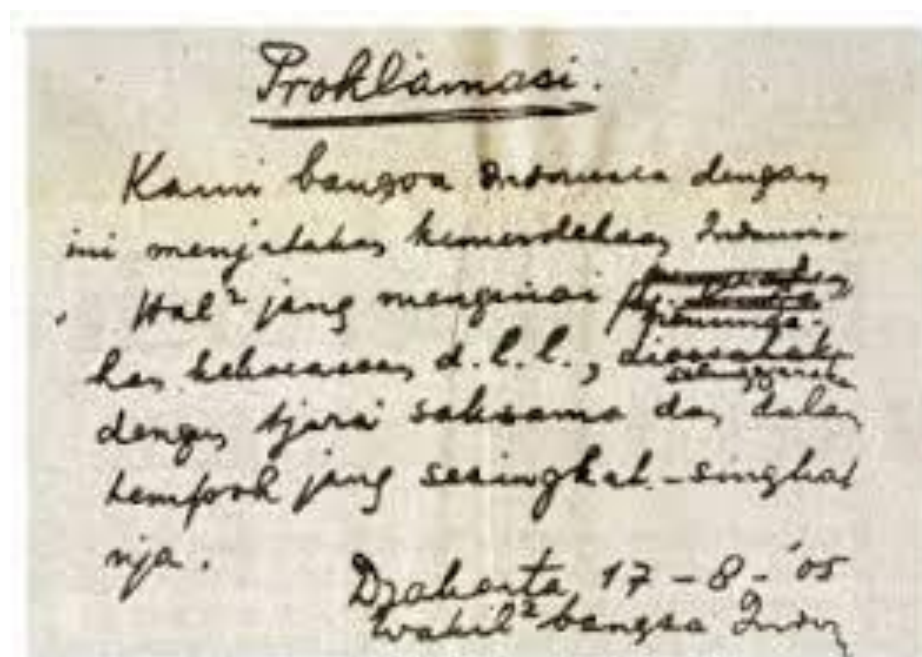 Proklamasi.
Kami bangsa Indonesia dengan
ini menjatakan kemerdekaan Indonesia
Hal² jang mengenai
kan kekoeasaan, d.l.l., diselenggarakan
dengan tjara saksama dan dalam
tempoh jang sesingkat-singkat
nja.
Djakarta 17 - 8 - '05
Wakil² bangsa Indon